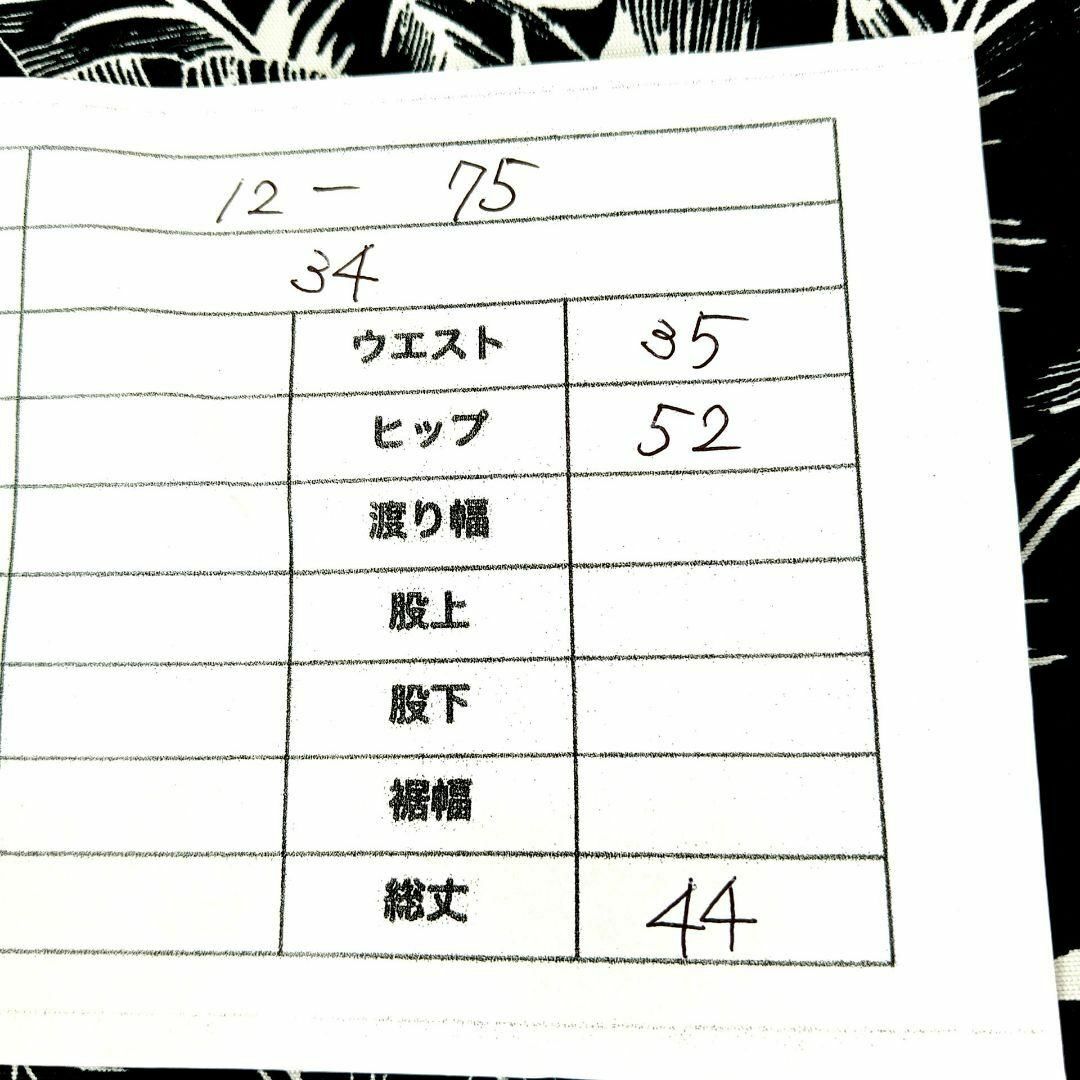 12 - 75
34
ウエスト 35
ヒップ 52
渡り幅
股上
股下
裾幅
総丈 44